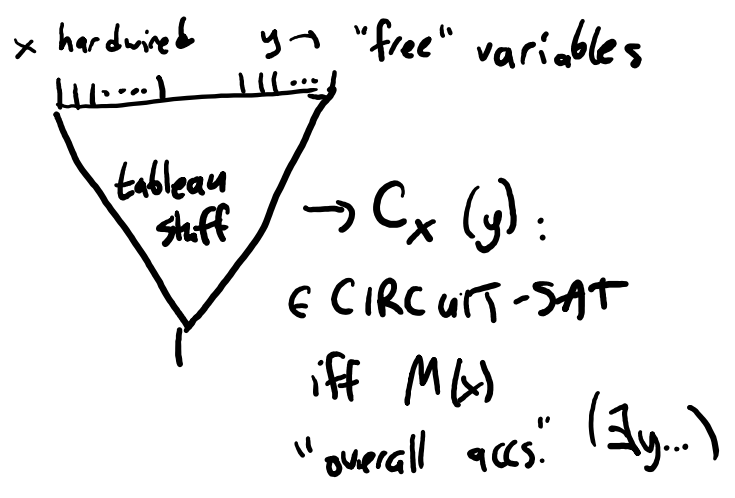 x hardwired y → "free" variables
tableau stuff
→ Cx (y) :
∈ CIRCUIT-SAT
iff M(x)
"overall accs." (∃y...)